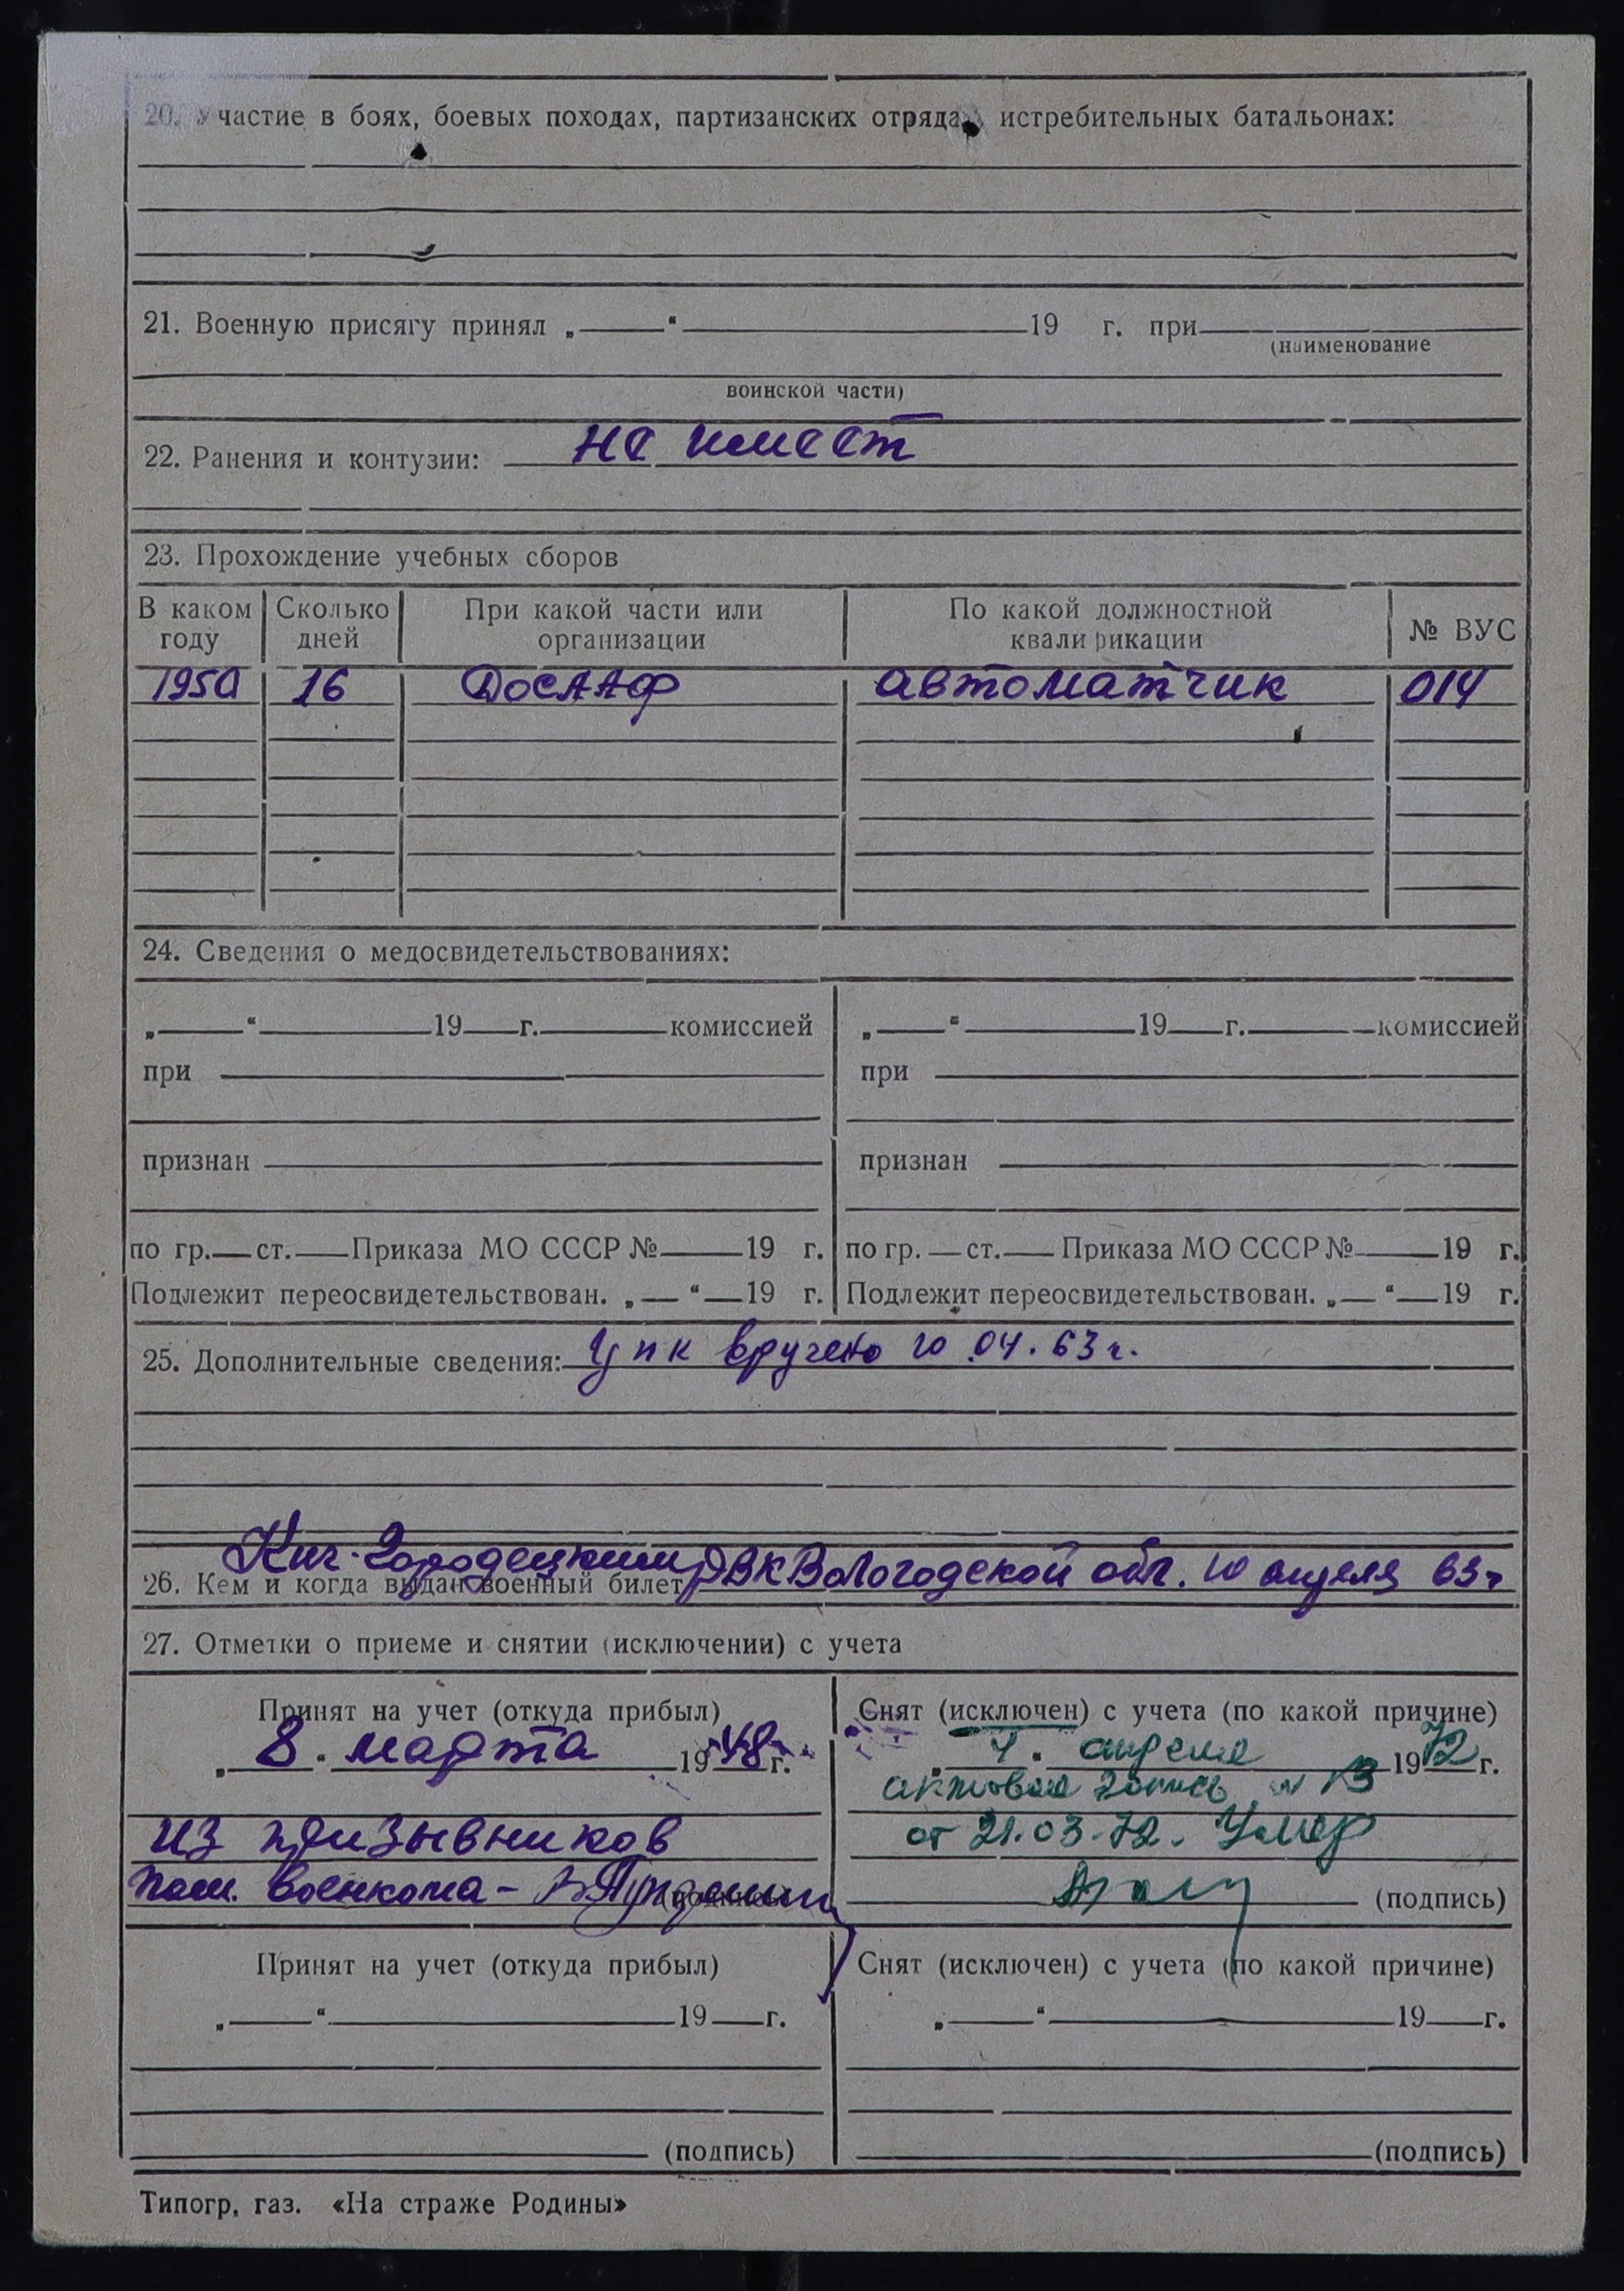 20. Участие в боях, боевых походах, партизанских отрядах, истребительных батальонах:
21. Военную присягу принял „ “ 19 г. при
(наименование
воинской части)
22. Ранения и контузии: не имеет
23. Прохождение учебных сборов
В каком году Сколько дней При какой части или организации По какой должностной квалификации № ВУС
1950 16 ДОСААФ автоматчик 014
24. Сведения о медосвидетельствованиях:
„ “ 19 г. комиссией „ “ 19 г. комиссией
при при
признан признан
по гр. ст. Приказа МО СССР № 19 г. по гр. ст. Приказа МО СССР № 19 г.
Подлежит переосвидетельствован. „ “ 19 г. Подлежит переосвидетельствован. „ “ 19 г.
25. Дополнительные сведения: УПК вручено 10.04.63 г.
26. Кем и когда выдан военный билет Кич-Городецким РВК Вологодской обл. 10 апреля 63 г
27. Отметки о приеме и снятии (исключении) с учета
Принят на учет (откуда прибыл) Снят (исключен) с учета (по какой причине)
„ 8 “ марта 1948 г. „ 4 “ апреля 1972 г.
актовая запись № 13
из призывников от 21.03.72. Умер
пом. военкома - (подпись) (подпись)
Принят на учет (откуда прибыл) Снят (исключен) с учета (по какой причине)
„ “ 19 г. „ “ 19 г.
(подпись) (подпись)
Типогр. газ. «На страже Родины»